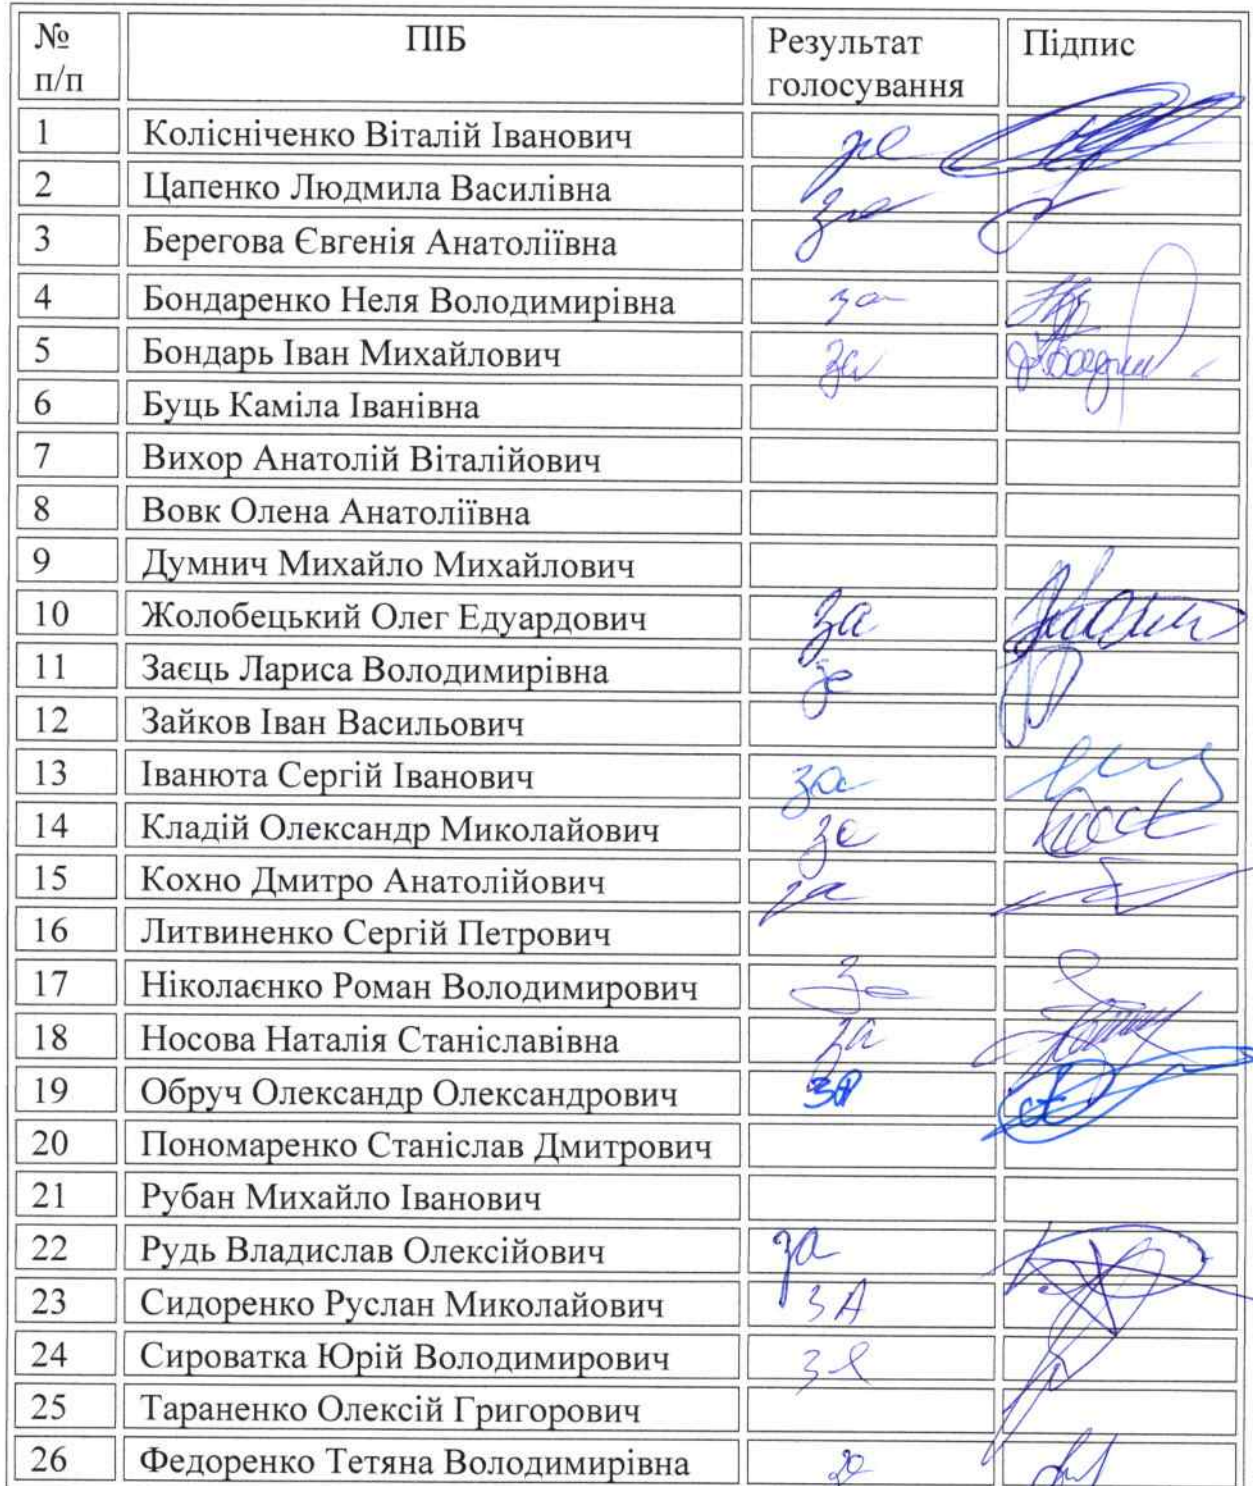 № п/п ПІБ Результат голосування Підпис
1 Колісніченко Віталій Іванович за
2 Цапенко Людмила Василівна за
3 Берегова Євгенія Анатоліївна
4 Бондаренко Неля Володимирівна за
5 Бондарь Іван Михайлович за
6 Буць Каміла Іванівна
7 Вихор Анатолій Віталійович
8 Вовк Олена Анатоліївна
9 Думнич Михайло Михайлович
10 Жолобецький Олег Едуардович за
11 Заєць Лариса Володимирівна за
12 Зайков Іван Васильович
13 Іванюта Сергій Іванович за
14 Кладій Олександр Миколайович за
15 Кохно Дмитро Анатолійович за
16 Литвиненко Сергій Петрович
17 Ніколаєнко Роман Володимирович за
18 Носова Наталія Станіславівна за
19 Обруч Олександр Олександрович за
20 Пономаренко Станіслав Дмитрович
21 Рубан Михайло Іванович
22 Рудь Владислав Олексійович за
23 Сидоренко Руслан Миколайович ЗА
24 Сироватка Юрій Володимирович за
25 Тараненко Олексій Григорович
26 Федоренко Тетяна Володимирівна за